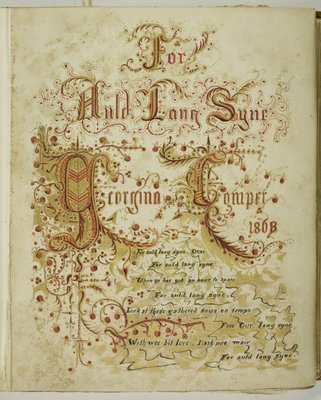 For
Auld Lang Syne
Georgina Cowper
1868
For auld lang syne, Dear
For auld lang syne
When ye hae got an hour to spare
For auld lang syne.
Look at these gathered snips an scraps
Frae Our lang syne
With wee bit love I ask nae mair
For auld lang syne.